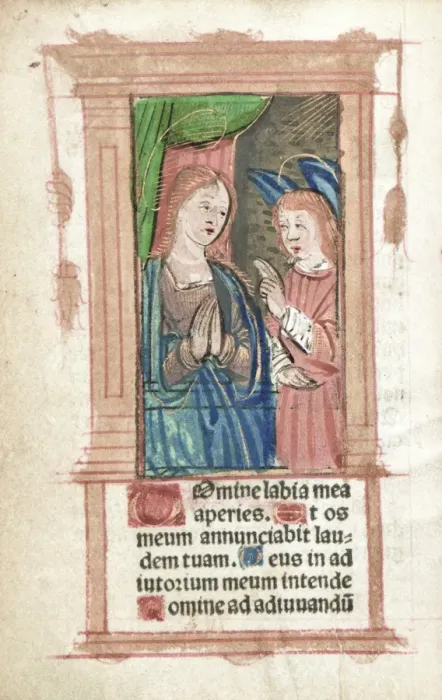 DOmine labia mea
aperies. Et os
meum annunciabit lau⸗
dem tuam. Deus in ad
iutorium meum intende
Domine ad adiuuandū